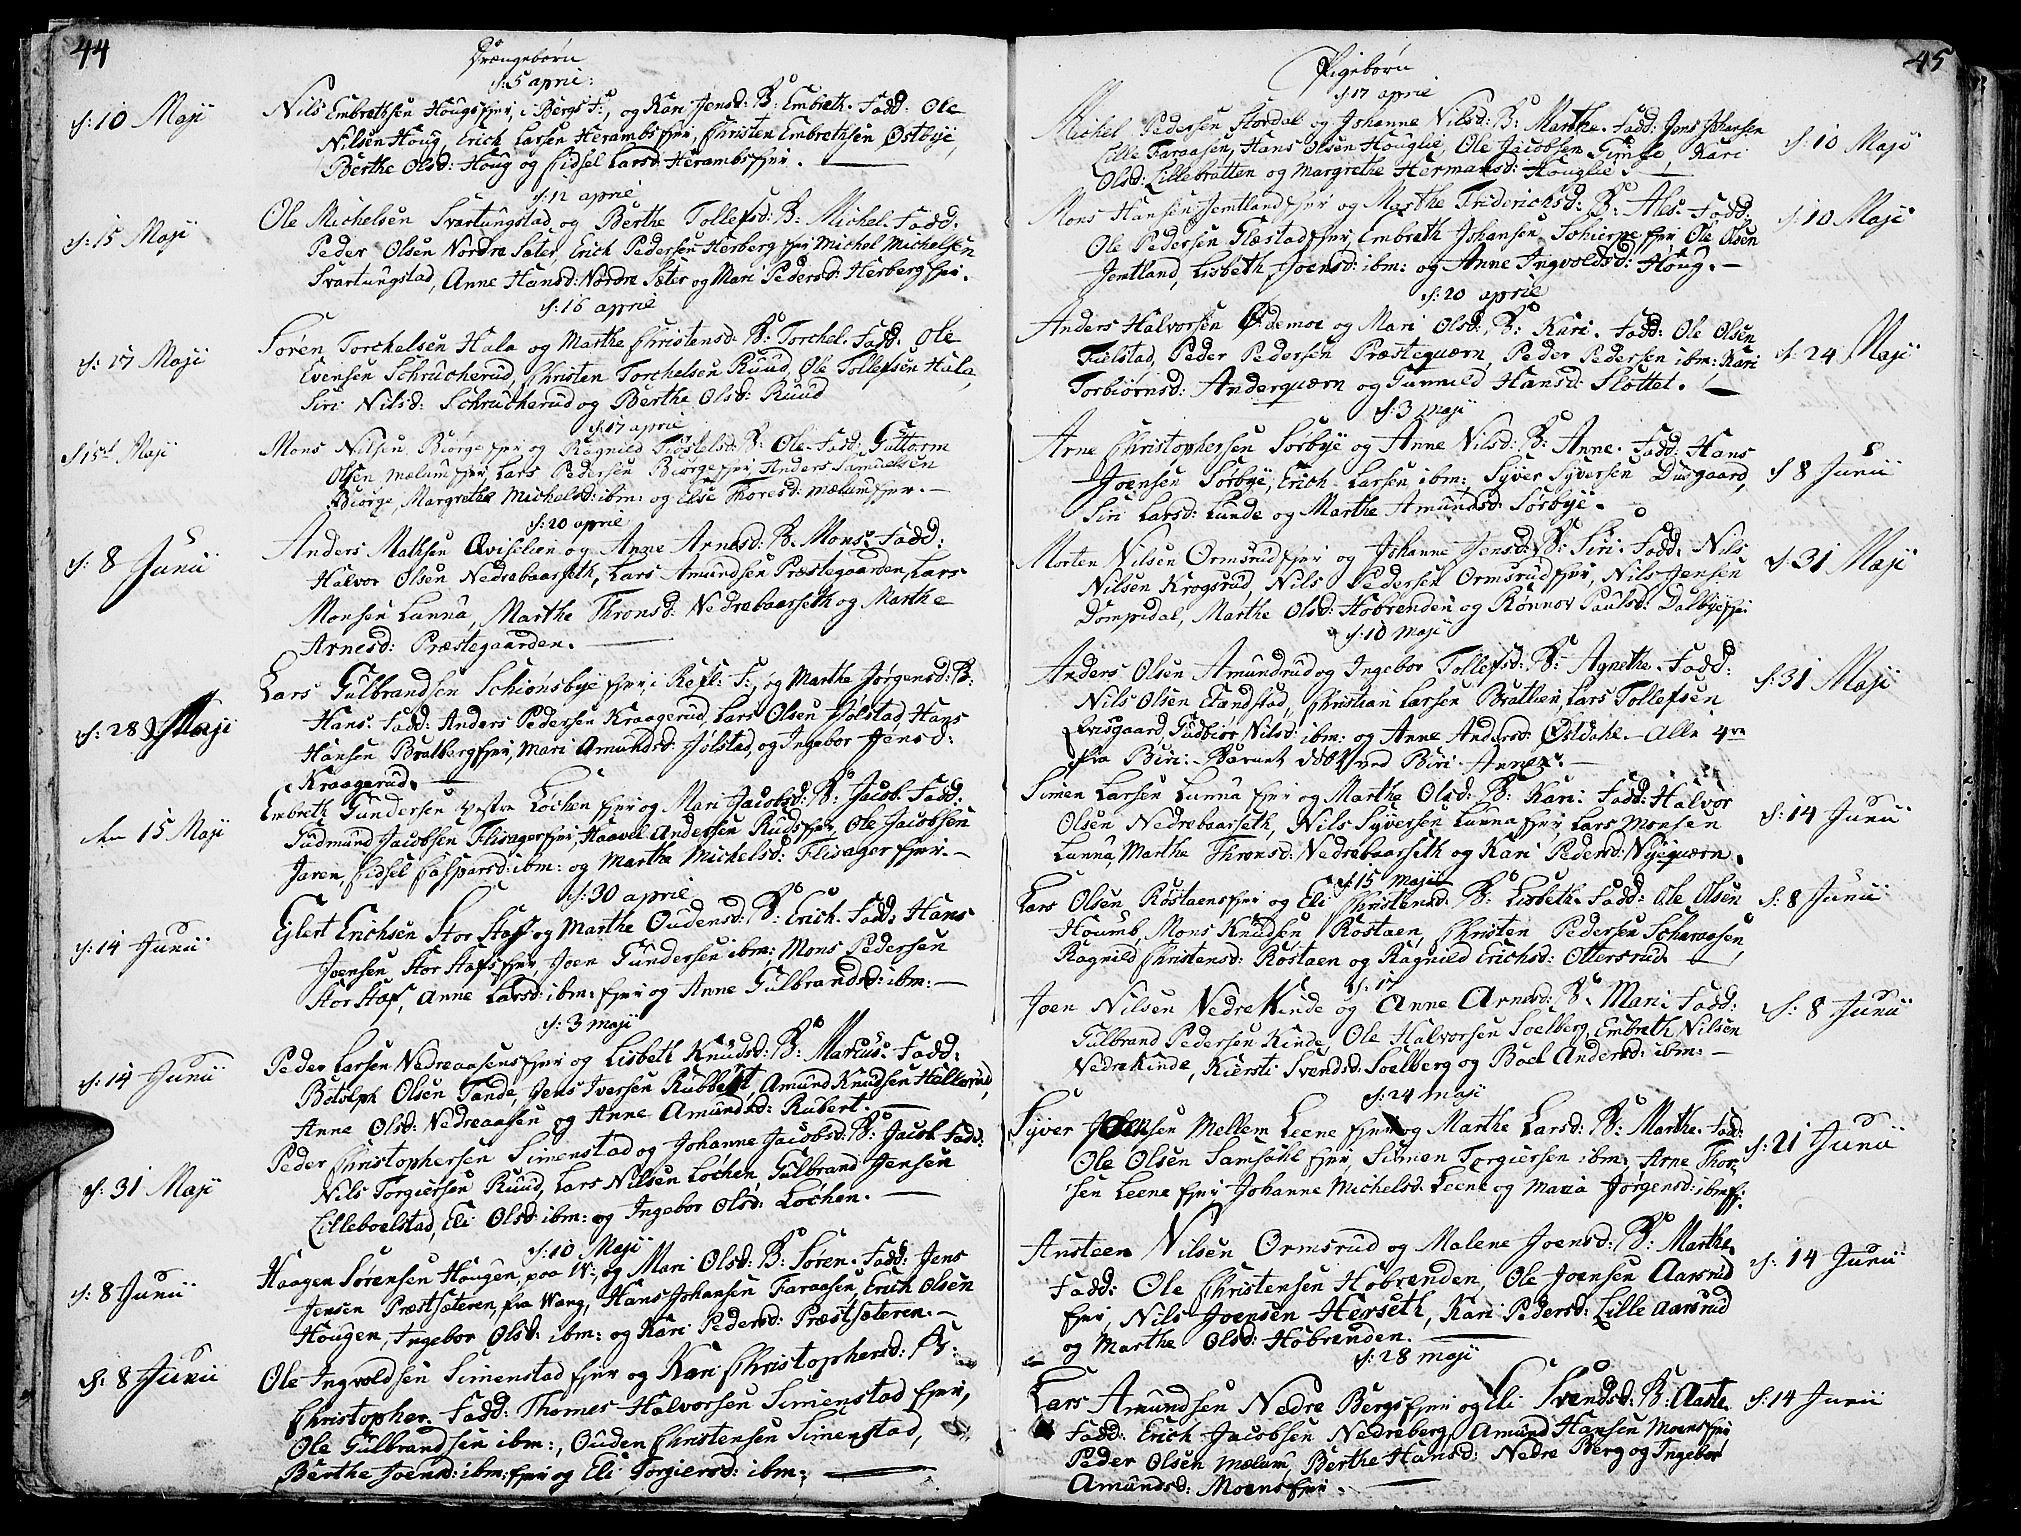 44
Drængebørn
d: 5 april:
d: 10 Maji
Nils Embrethsen Hougs Ejer, i Bergs F:, og Kari Jensd: B: Embreth. Fadd: Ole
Nilsen Houg, Erich Larsen Herambs Ejer, Christen Embrethsen Østbye,
Berthe Olsd: Houg og Sidsel Larsd: Herambs Ejer.
d: 12 april
d: 15 Maji
Ole Michelsen Svartungstad og Berthe Tollefsd: B: Michel. Fadd:
Peder Olsen Nordre Sæter, Erich Pedersen Herberg Ejer Michel Michelsen
Svartungstad, Anne Hansd: Nordre Sæter og Mari Pedersd: Herberg Ejer.
d: 16 april
d: 17 Maji
Søren Torchelsen Hala og Marthe Christensd: B: Torchel. Fadd: Ole
Evensen Schrucherud, Christen Torchelsen Ruud, Ole Tollefsen Hala,
Siri Nilsd: Schrucherud og Berthe Olsd: Ruud
d: 17 april
d 15de Maji
Mons Nilsen Biørge Ejer og Ragnild Tostelsd: B: Ole. Fadd: Guttorm
Olsen Mælum Ejer, Lars Pedersen Biørge Ejer, Anders Samuelsen
Biørge, Margrethe Michelsd: ibm: og Else Thoresd: Mælum Ejer.
d: 20 april
d: 8 Junii
Anders Mathsen Qviselien og Anne Arnesd: B. Mons. Fadd:
Halvor Olsen Nedrebaarseth, Lars Amundsen Præstegaarden, Lars
Monsen Lunna, Marthe Thronsd: Nedrebaarseth og Marthe
Arnesd: Præstegaarden.
d: 28 Maji
Lars Gulbrandsen Schiønsbye Ejer, i Refl: F:, og Marthe Jørgensd: B:
Hans. Fadd: Anders Pedersen Kraagerud, Lars Olsen Jølstad, Hans
Hansen Bratberg Ejer, Mari Amundsd: Jølstad, og Ingebor Jensd:
Kraagerud.
den 15 Maji
Embreth Gundersen Løchen Ejer og Mari Jacobsd: B: Jacob. Fadd:
Gudmund Jacobsen Flisager Ejer, Haavel Andersen Ruds Ejer, Ole Jacobsen
Jaren, Sidsel Casparsd: ibm: og Marthe Michelsd: Flisager Ejer.
d: 30 april
d: 14 Junii
Eylert Erichsen Stor Staf og Marthe Oudensd: B: Erich. Fadd: Hans
Joensen Stor Stafs Ejer, Joen Gundersen ibm: Mons Pedersen
Stor Staf, Anne Larsd: ibm: Ejer og Anne Gulbrandsd: ibm:
d: 3 Maji
d: 14 Junii
Peder Larsen Nedreaasens Ejer og Lisbeth Knudsd: B: Marcus. Fadd:
Botolph Olsen Tande, Jens Iversen Rubbert, Amund Knudsen Hallerud,
Anne Olsd: Nedreaasen og Anne Amundsd: Rubert.
d: 31 Maji
Peder Christophersen Simenstad og Johanne Jacobsd: B: Jacob. Fadd:
Nils Torgiersen Ruud, Lars Nilsen Løchen, Gulbrand Jensen
Lilleboelstad, Eli Olsd: ibm: og Ingebor Olsd: Løchen.
d: 10 Maji
d: 8 Junii
Haagen Sørensen Hougen, paa N:, og Mari Olsd: B: Søren. Fadd: Jens
Jensen Præstsæteren, fra Wang, Hans Johansen Faraasen, Erich Olsen
Hougen, Ingebor Olsd: ibm: og Kari Pedersd: Præstsæteren.
d: 8 Junii
Ole Ingvoldsen Simenstad Ejer og Kari Christophersd: B:
Christopher. Fadd: Thomes Halvorsen Simenstad Ejer,
Ole Gulbrandsen ibm:, Ouden Christensen Simenstad,
Berthe Joensd: ibm: Ejer og Eli Torgiersd: ibm:
45
Pigebørn
d: 17 april
Michel Pedersen Stordal og Johanne Nilsd: B: Marthe. Fadd: Jens Johansen
d: 10 Maji
Lille Faraasen, Hans Olsen Houglie, Ole Jacobsen Kari
Olsd: Lillebratten og Margrethe Hermansd: Houglie.
Mons Hansen Jemtland Ejer og Marthe Friderichsd: B: Alis. Fadd:
d: 10 Maji
Ole Pedersen Glæstad Ejer, Embreth Johansen Ejer, Ole Olsen
Jemtland, Lisbeth Joensd: ibm: og Anne Ingvoldsd: Houg.
d: 20 april
Anders Halvorsen Ødemoe og Mari Olsd: B: Kari. Fadd: Ole Olsen
d: 24 Maji
Fielstad, Peder Pedersen Præsteqværn, Peder Pedersen ibm: Kari
Torbiørnsd: Anderqværn og Gunnild Hansd: Slottet.
d: 3 Maji
Arne Christophersen Sørbye og Anne Nilsd: B: Anne. Fadd: Hans
d 8 Junii
Joensen Sørbye, Erich Larsen ibm:, Syver Syversen Dusgaard,
Siri Larsd: Lunde og Marthe Amundsd: Sørbye.
Morten Nilsen Ormsrud Ejer og Johanne Jensd: B: Siri. Fadd: Nils
d: 31 Maji
Nilsen Krogsrud, Nils Pedersen Ormsrud Ejer, Nils Jensen
Dompidal, Marthe Olsd: Hobrenden og Rønnov Paulsd: Dalbye Ejer
d: 10 Maji
Anders Olsen Amundrud og Ingebor Tollefsd: B: Agnethe. Fadd:
d: 31 Maji
Nils Olsen Elandstad, Christian Larsen Bratlien, Lars Tollefsen
Qvisgaard, Gudbior Nilsd: ibm: og Anne Andersd: Østdahl. Alle 4re
fra Biri. Barnet døbt ved Biri Annex.
Simen Larsen Lunna Ejer og Marthe Olsd: B: Kari. Fadd: Halvor
d: 14 Junii
Olsen Nedrebaarseth, Nils Syversen Lunna Ejer, Lars Monsen
Lunna, Marthe Thronsd: Nedrebaarseth og Kari Pedersd: Nyeqværn.
d: 15 Maji
Lars Olsen Rostaens Ejer og Eli Christensd: B: Lisbeth. Fadd: Ole Olsen
d: 8 Junii
Houmb, Mons Knudsen Rostaen, Christen Pedersen Scharaasen,
Ragnild Christensd: Rostaen og Ragnild Erichsd: Ottersrud.
d: 17
Joen Nilsen Nedre Kinde og Anne Arnesd: B: Mari. Fadd:
d: 8 Junii
Gulbrand Pedersen Kinde, Ole Halvorsen Soelberg, Embreth Nilsen
Nedrekinde, Kiersti Svendsd: Soelberg og Boel Andersd: ibm:
d: 24 Maji
Syver Jensen Mellem Leene Ejer og Marthe Larsd: B: Marthe. Fad:
d: 21 Junii
Ole Olsen Samsahl Ejer, Simen Torgiersen ibm:, Arne Thor-
sen Leene Ejer, Johanne Michelsd: Leene og Maria Jørgensd: ibm Ej:
Ansteen Nilsen Ormsrud og Malene Joensd: B: Marthe.
d: 14 Junii
Fadd: Ole Christensen Hobrenden, Ole Joensen Aarsrud
Ejer, Nils Joensen Herseth, Kari Pedersd: Lille Aarsrud
og Marthe Olsd: Hobrenden.
d: 28 Maji
Lars Amundsen Nedre Bergs Ejer og Eli Svendsd: B: Aaste.
d: 14 Junii
Fadd: Erich Jacobsen Nedreberg, Amund Hansen Moens Ejer
Peder Olsen Mælum, Berthe Hansd: Nedre Berg og Ingebor
Amundsd: Moens Ejer.